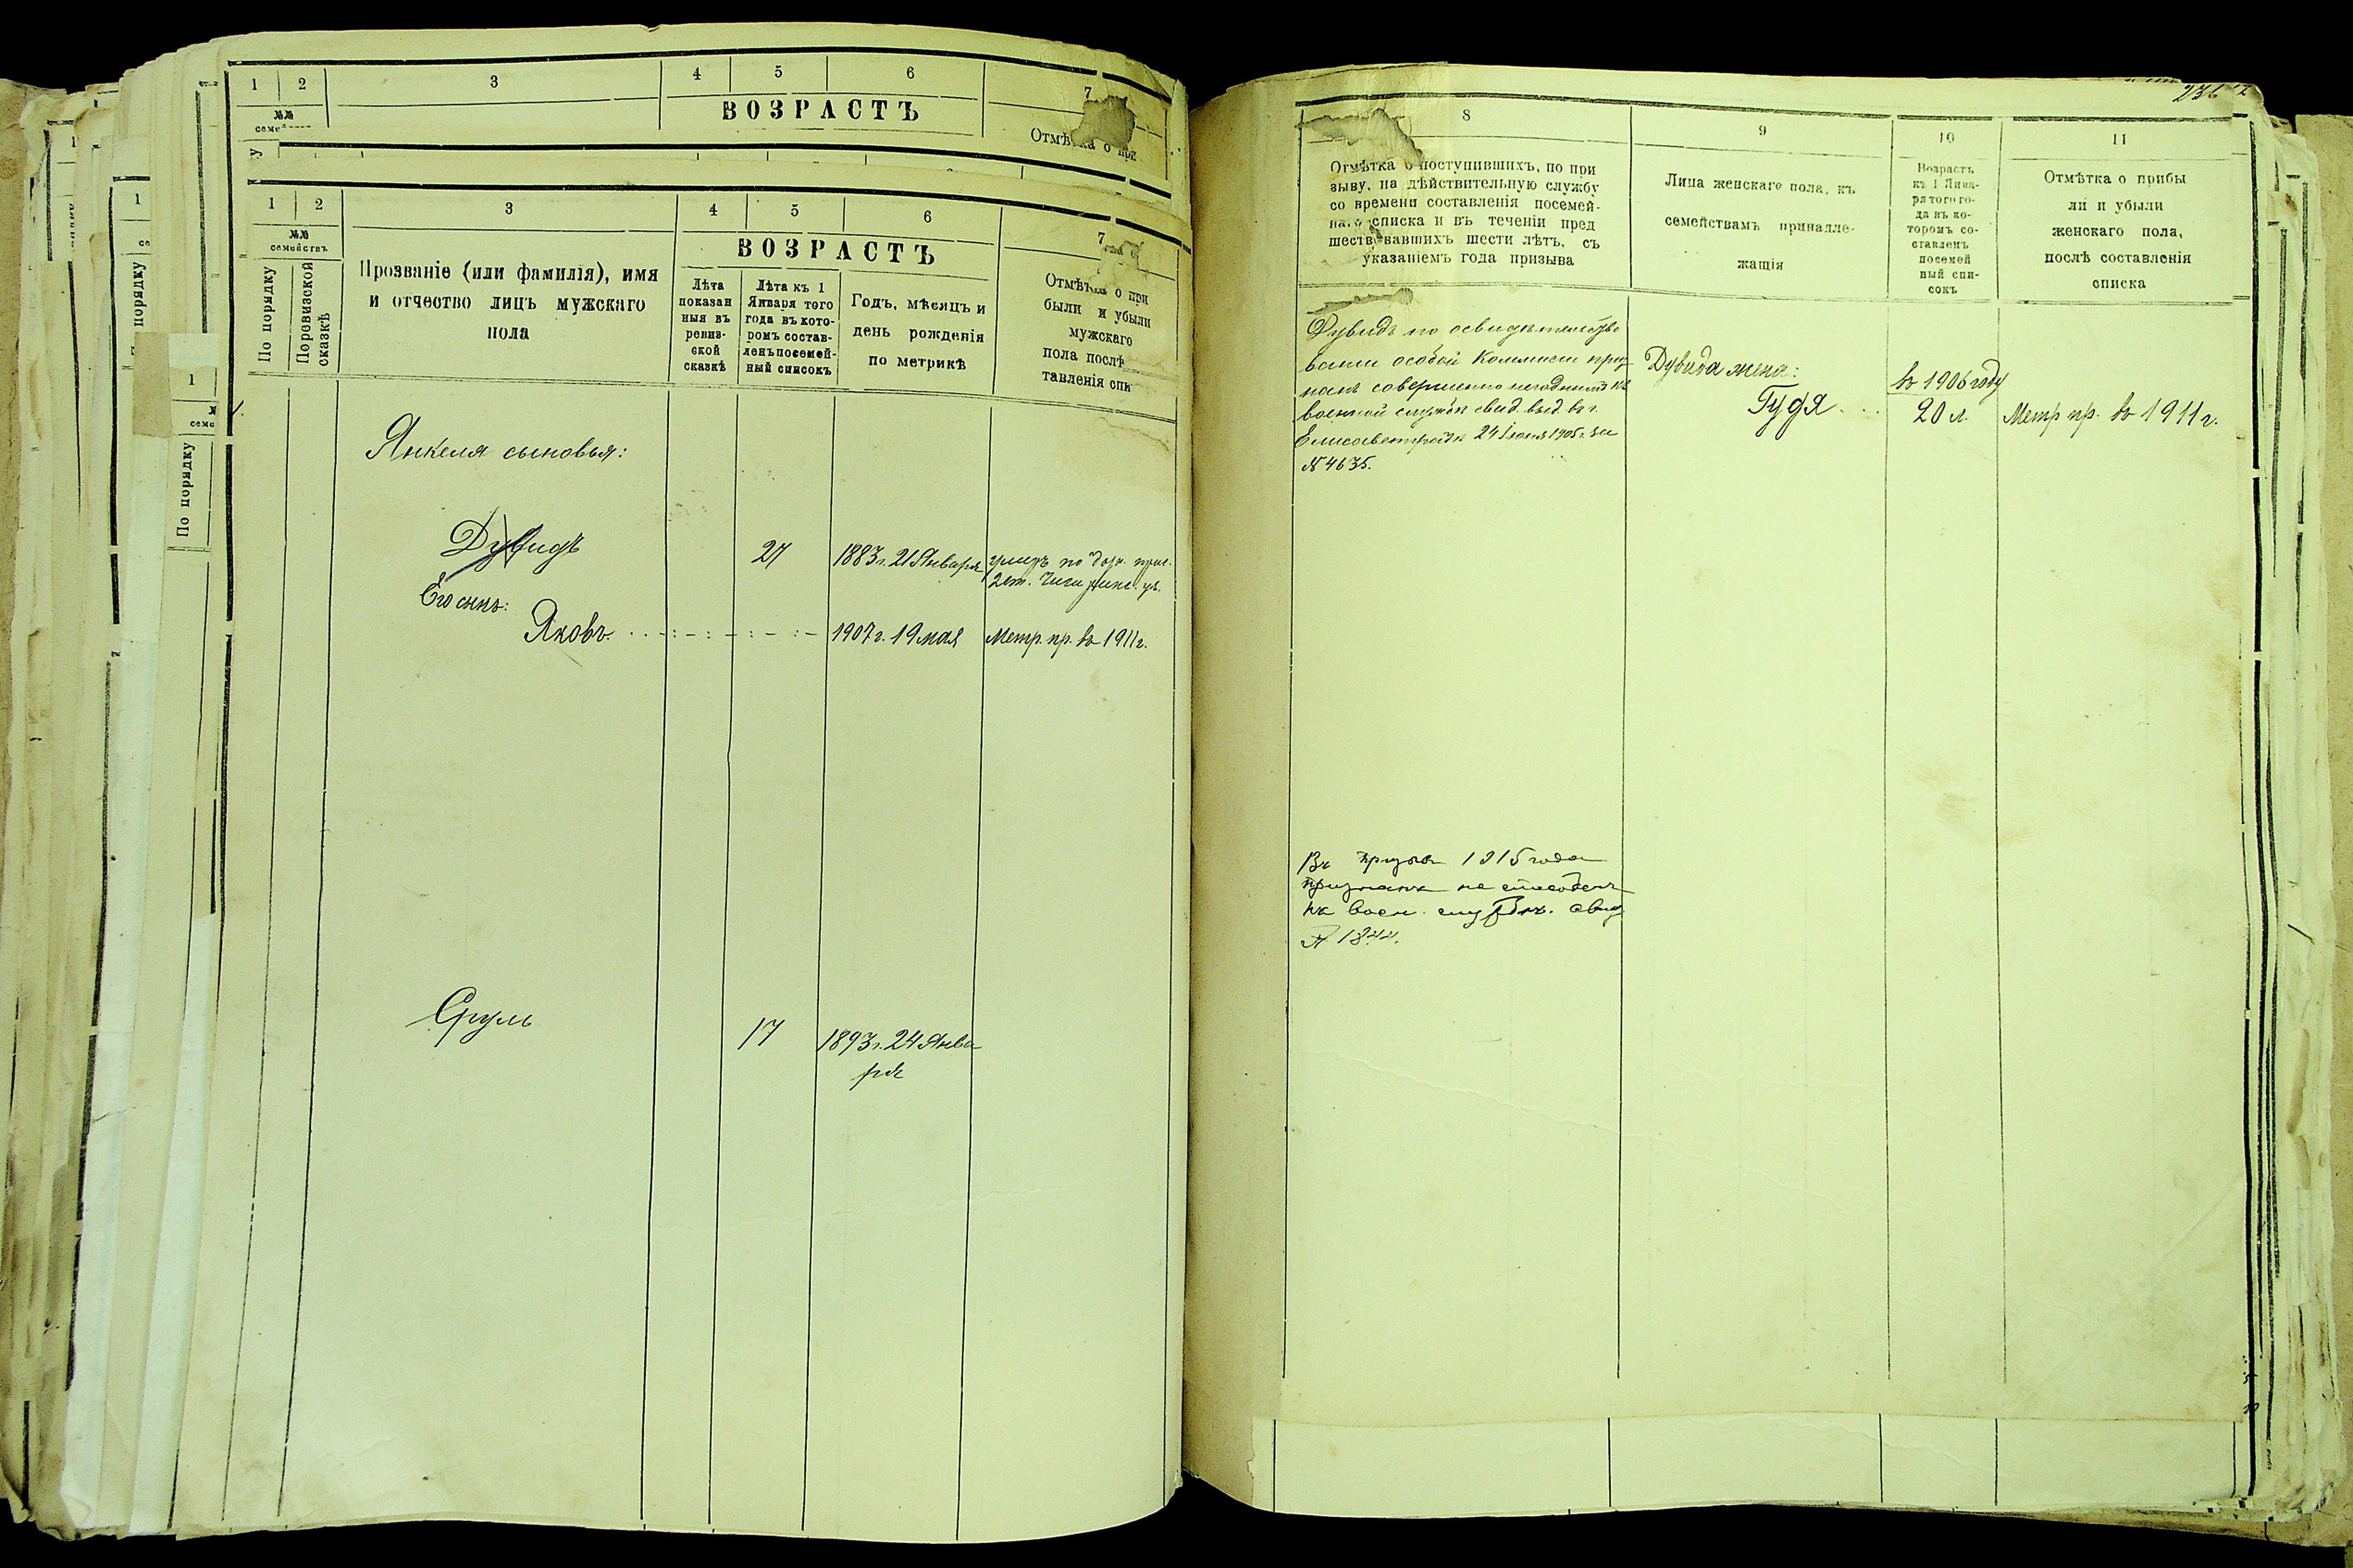 1 2 3 4 5 6 7
№№
ВОЗРАСТЪ
1 2 3 4 5 6 7
№№
семействъ
По порядку
По ревизской
сказкѣ
Прозваніе (или фамилія), имя
и отчество лицъ мужскаго
пола
ВОЗРАСТЪ
Лѣта
показан
ныя въ
ревиз-
ской
сказкѣ
Лѣта къ 1
Января того
года въ кото-
ромъ состав-
ленъ посемей-
ный списокъ
Годъ, мѣсяцъ и
день рожденія
по метрикѣ
Отмѣтка о при
были и убыли
мужскаго
пола послѣ
тавленія спи
Янкеля сыновья:
Дувидъ 27 1883 г. 21 Января
умеръ по
Его сынъ:
Яковъ. 1907 г. 19 мая Метр. пр. въ 1911 г.
Сруль 17 1893 г. 24 Янва
ря
236
8 9 10 11
Отмѣтка о поступившихъ, по при
зыву, на дѣйствительную службу
со времени составленія посемей-
наго списка и въ теченіи пред
шествовавшихъ шести лѣтъ, съ
указаніемъ года призыва
Лица женскаго пола, къ
семействамъ принадле-
жащія
Возрастъ
къ 1 Янва-
ря того го-
да въ ко-
торомъ со-
ставленъ
посемей
ный спи-
сокъ
Отмѣтка о прибы
ли и убыли
женскаго пола,
послѣ составленія
списка
Дувидъ по освидѣтельство
вании особой Коммисии приз
нанъ совершенно негоднымъ къ
военной службѣ свид. выд. въ г.
Елисаветградѣ 24 Іюня 1905 г. за
№ 4635.
Дувида жена:
Гудя . . .
въ 1906 году
20 л.
Метр пр. въ 1911 г.
Въ призывъ 1915 года
признанъ не способенъ
къ воен. службѣ. свид
По порядку